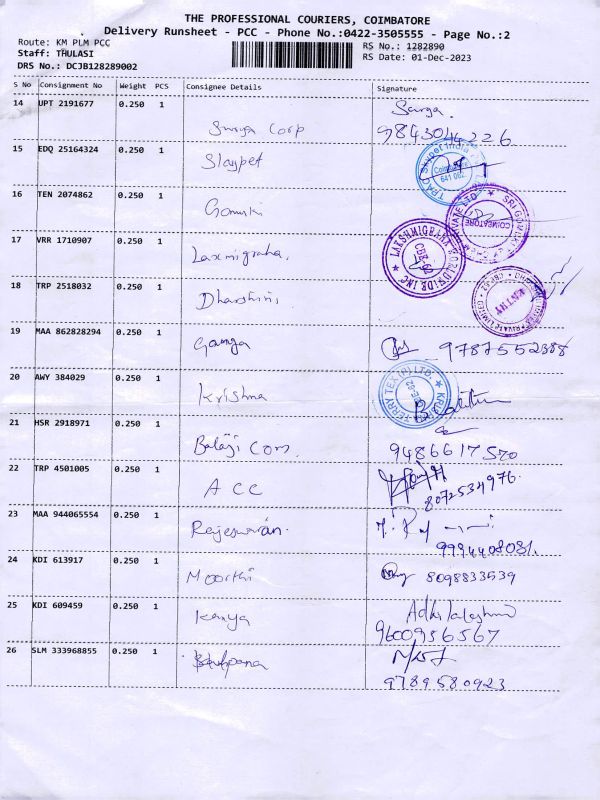 THE PROFESSIONAL COURIERS, COIMBATORE
Delivery Runsheet - PCC - Phone No.:0422-3505555 - Page No.:2
Route: KM PLM PCC
RS No.: 1282890
Staff: THULASI
RS Date: 01-Dec-2023
DRS No.: DCJB128289002
S No Consignment No Weight PCS Consignee Details Signature
14 UPT 2191677 0.250 1 Surya Corp Surya.
9843044226
15 EDQ 25164324 0.250 1 Slaypet
16 TEN 2074862 0.250 1 Gomuki
COIMBATORE
17 VRR 1710907 0.250 1 Laxmigraha,
LAKSHMIGRAHA WORLDWIDE INC
CBE-62
18 TRP 2518032 0.250 1 Dharshini,
ENTRY
19 MAA 862828294 0.250 1 Ganga 9787552388
20 AWY 384029 0.250 1 Krishna
TERRY TEX (P) LTD.
21 HSR 2918971 0.250 1 Balaji Com.
9486617570
22 TRP 4501005 0.250 1 ACC
8072534976.
23 MAA 944065554 0.250 1 Rajeswaran.
9994408081.
24 KDI 613917 0.250 1 Moorthi 8098833539
25 KDI 609459 0.250 1 Kanya
9600936567
26 SLM 333968855 0.250 1
9789580923